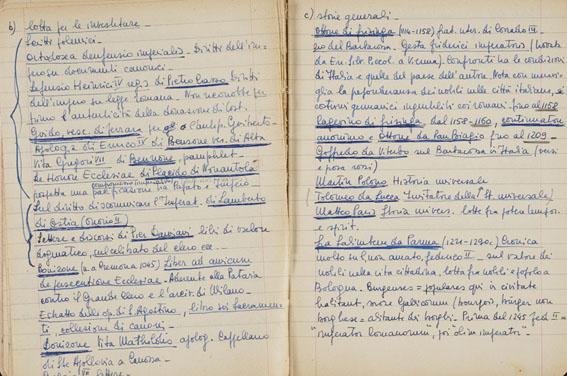 b) lotta per le investiture -
Scritti polemici -
Ortodoxa defensio imperialis - Diritti dell'im=
pero su documenti canonici -
Defensio Heinrici IV regis di Pietro Crasso Diritti
dell'impero su legge romana. Non riconobbe per
primo l'autenticità della donazione di Cost.
Guido, vesc. di Ferrara per l'antipapa Guiberto -
Apologia di Enrico IV di Benzone vesc. di Alba
Vita Gregori VII di Bennone, pamphlet -
De Honore Ecclesiae di Placido di Nonantola
prospetta una pacificazione fra Papato e Impero -
Sul diritto di scomunicare l'Imperat. di Lamberto
di Ostia (Onorio II)
Lettere e discorsi di Pier Damiani libri di valore
dogmatico, sul celibato del clero ecc.
Bonizone (n. a Cremona 1045) Liber ad amicum
de persecutione Ecclesiae - Aderente alla Pataria
contro il Grande clero e l'arciv. di Milano -
Estratto dalle op. di S. Agostino, libro sui sacramen=
ti, collezione di canoni -
Donizone Vita Mathildis apolog. Cappellano
di Sta Apollonia a Canossa -
c) storie generali -
Ottone di Frisinga (1114-1158) frat. uter. di Corrado III
zio del Barbarossa - Gesta Friderici imperatoris (trovata
da En. Silv. Piccol. a Vienna). Confronti fra le condizioni
d'Italia e quelle del paese dell'autore. Nota con meravi=
glia la preponderanza dei nobili nelle città italiane, i
costumi germanici ingentiliti coi romani. fino al 1158
Ragevino di Frisinga, dal 1158-1160, continuatore
anonimo e Ottone da San Biagio fino al 1209 -
Goffredo da Viterbo sul Barbarossa in Italia (versi
e prosa rossi)
Martin Polono Historia universale
Tolomeo da Lucca "imitatore della" St. universale
Matteo Paris Storia univers. lotte fra poteri tempor.
e spirit.
Fra Salimbene da Parma (1221-1290) Cronica
molto su suoi amato, Federico II - sul valore dei
nobili nella vita cittadina, lotta fra nobili e popolo a
Bologna. Burgenses = populares qui in civitate
habitant, more Galicorum (bourgeois, bürger non
borghese = abitante dei borghi - Prima del 1245 Fed. II =
"imperator romanorum", poi "olim imperator" -